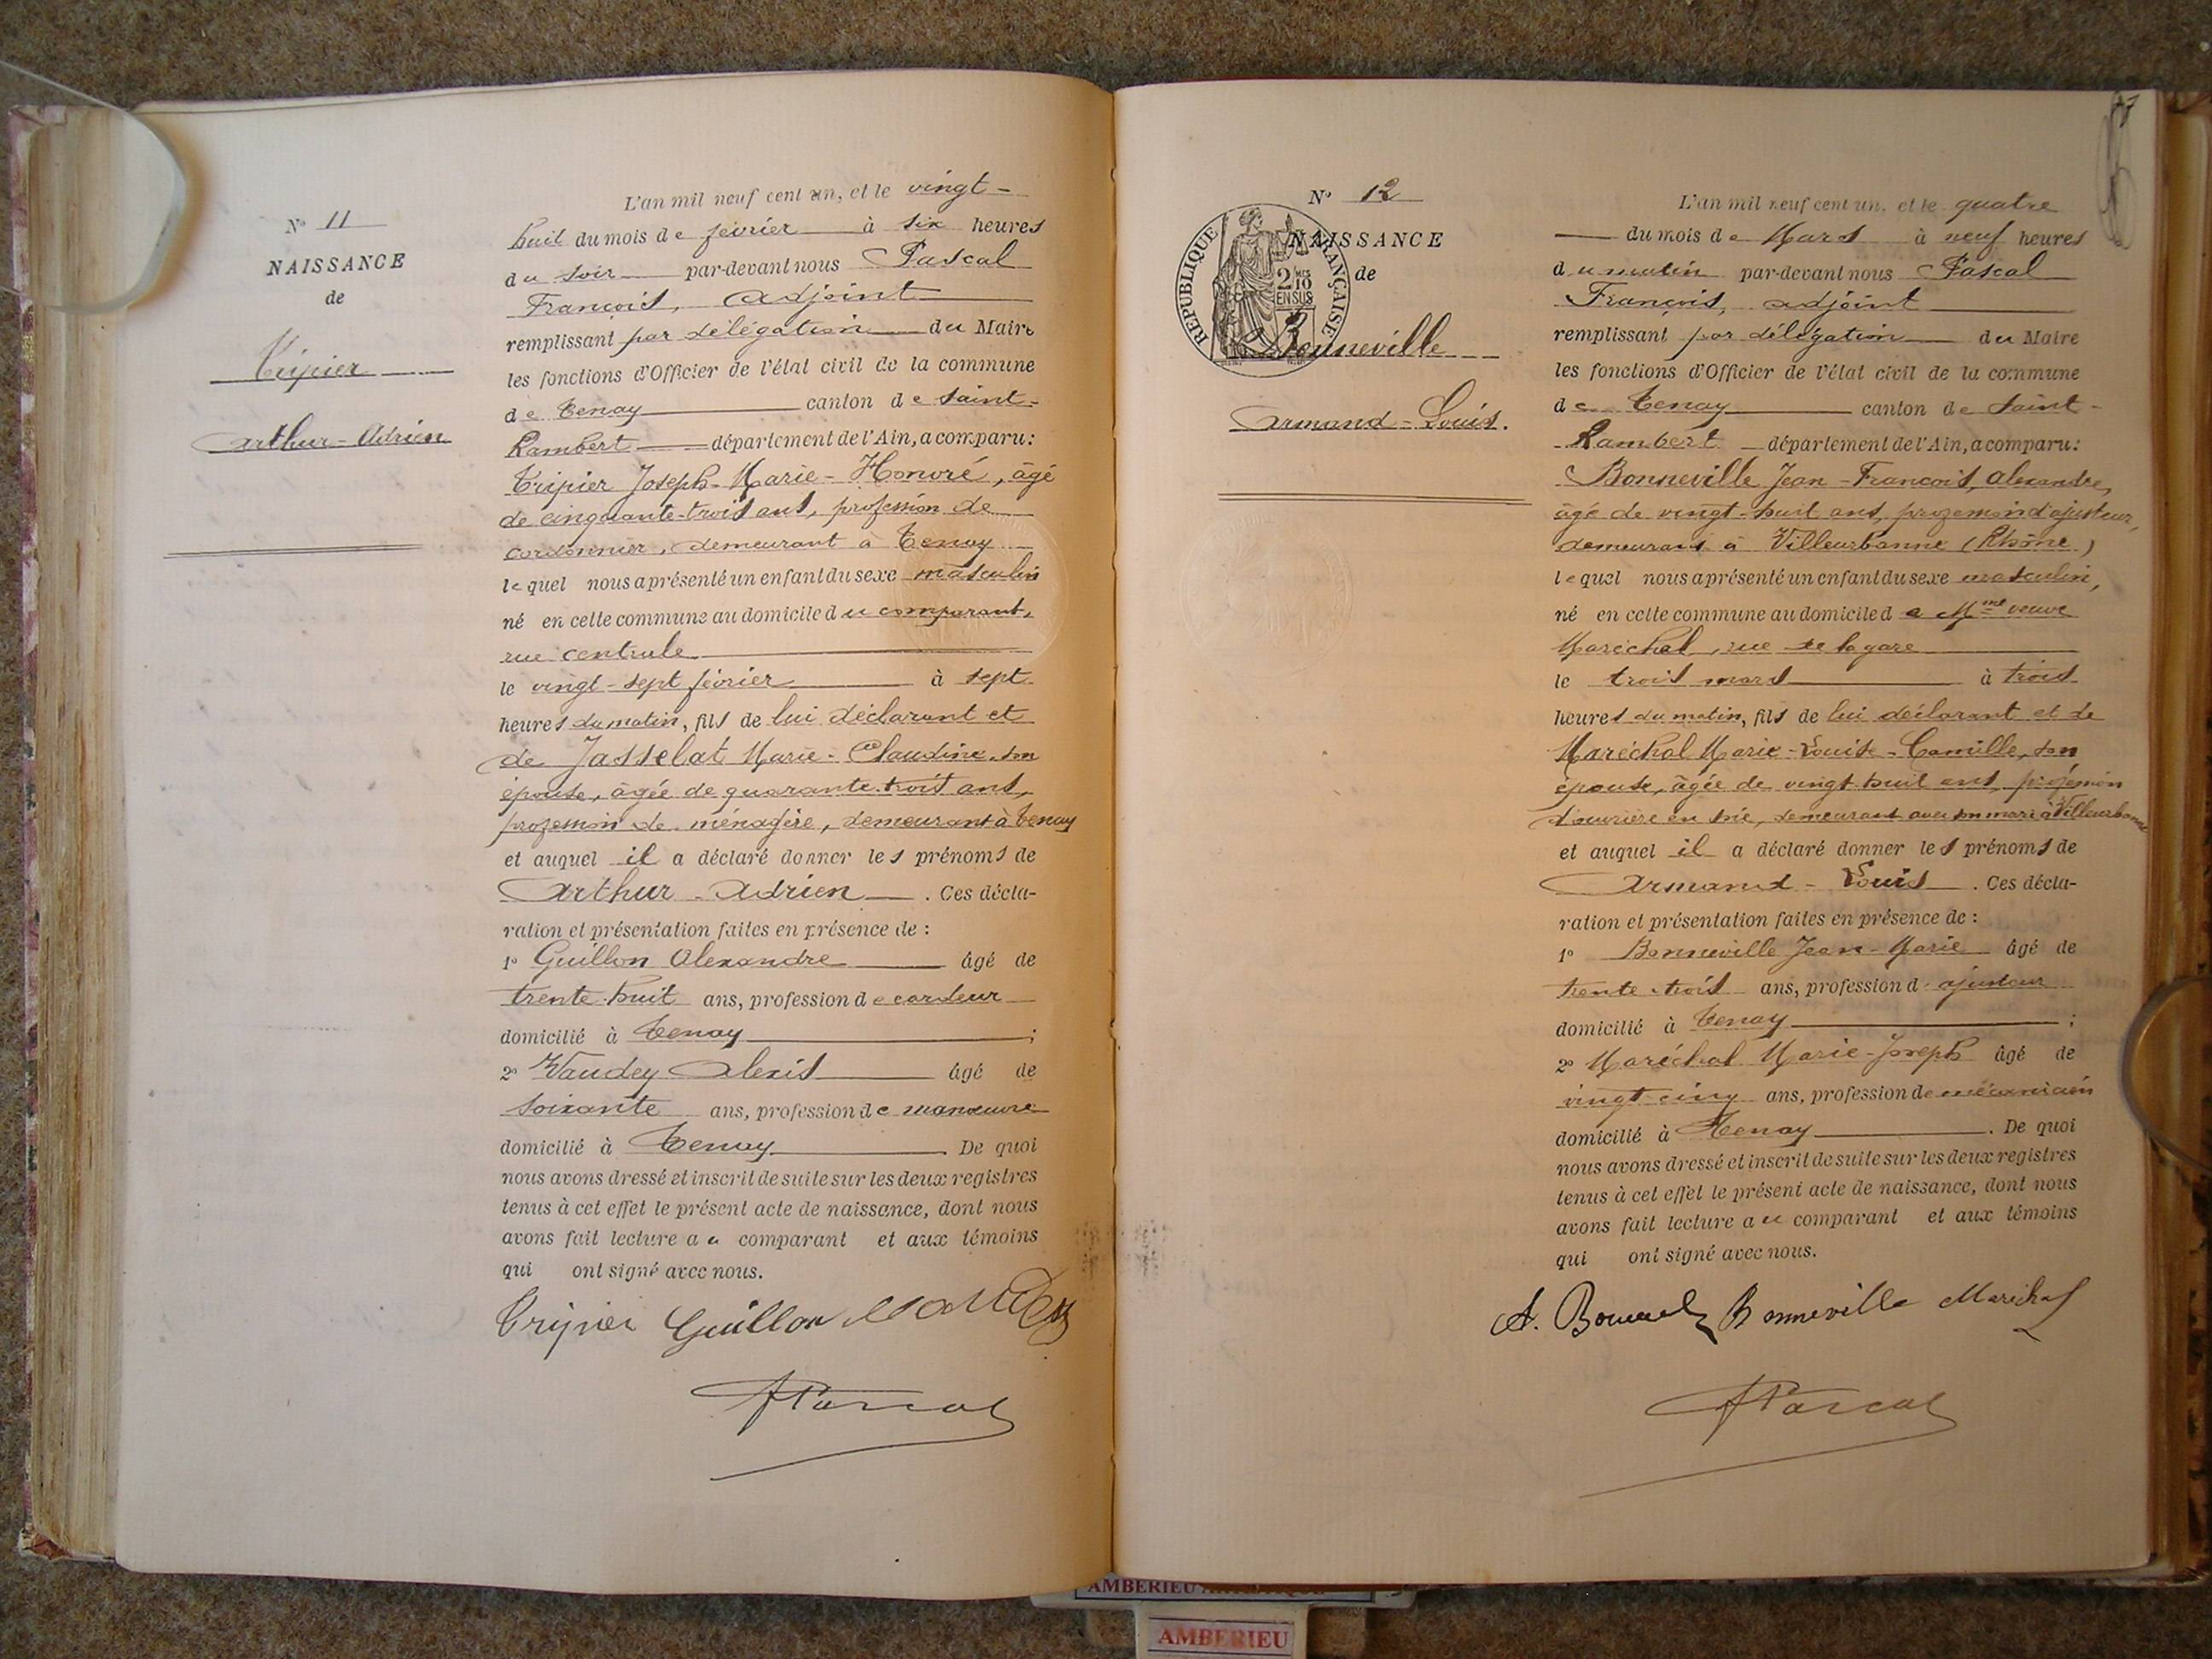 N° 11
NAISSANCE
de
Tripier
Arthur-Adrien
L'an mil neuf cent un, et le vingt-
huit du mois de février à six heures
du soir par-devant nous Pascal
François, adjoint
remplissant par délégation du Maire
les fonctions d'Officier de l'état civil de la commune
de Tenay canton de Saint-
Rambert département de l'Ain, a comparu:
Tripier Joseph-Marie-Honoré, âgé
de cinquante-trois ans, profession de
cordonnier, demeurant à Tenay
lequel nous a présenté un enfant du sexe masculin
né en cette commune au domicile du comparant,
rue centrale
le vingt-sept février à sept
heures du matin, fils de lui déclarant et
de Jasselat Marie-Claudine son
épouse, âgée de quarante-trois ans,
profession de ménagère, demeurant à Tenay
et auquel il a déclaré donner les prénoms de
Arthur-Adrien. Ces décla-
ration et présentation faites en présence de :
1° Guillon Alexandre âgé de
trente-huit ans, profession de cardeur
domicilié à Tenay ;
2° Vaudey Alexis âgé de
soixante ans, profession de manœuvre
domicilié à Tenay. De quoi
nous avons dressé et inscrit de suite sur les deux registres
tenus à cet effet le présent acte de naissance, dont nous
avons fait lecture au comparant et aux témoins
qui ont signé avec nous.
Tripier Guillon
Pascal
N° 12
NAISSANCE
de
REPUBLIQUE FRANÇAISE
2 10
EN SUS
Bonneville
Armand-Louis.
L'an mil neuf cent un, et le quatre
du mois de Mars à neuf heures
du matin par-devant nous Pascal
François, adjoint
remplissant par délégation du Maire
les fonctions d'Officier de l'état civil de la commune
de Tenay canton de Saint-
Rambert département de l'Ain, a comparu:
Bonneville Jean-François, Alexandre,
âgé de vingt-huit ans, profession d'ajusteur,
demeurant à Villeurbanne (Rhône)
lequel nous a présenté un enfant du sexe masculin,
né en cette commune au domicile de Mme veuve
Maréchal, rue de la gare
le trois mars à trois
heures du matin, fils de lui déclarant et de
Maréchal Marie-Louise-Camille, son
épouse, âgée de vingt-huit ans, profession
d'ouvrière en soie, demeurant avec son mari à Villeurbanne
et auquel il a déclaré donner les prénoms de
Armand-Louis. Ces décla-
ration et présentation faites en présence de :
1° Bonneville Jean-Marie âgé de
trente-trois ans, profession d'ajusteur
domicilié à Tenay ;
2° Maréchal Marie-Joseph âgé de
vingt-cinq ans, profession de mécanicien
domicilié à Tenay. De quoi
nous avons dressé et inscrit de suite sur les deux registres
tenus à cet effet le présent acte de naissance, dont nous
avons fait lecture au comparant et aux témoins
qui ont signé avec nous.
A. Bonneville Bonneville Maréchal
Pascal
AMBERIEU
AMBERIEU